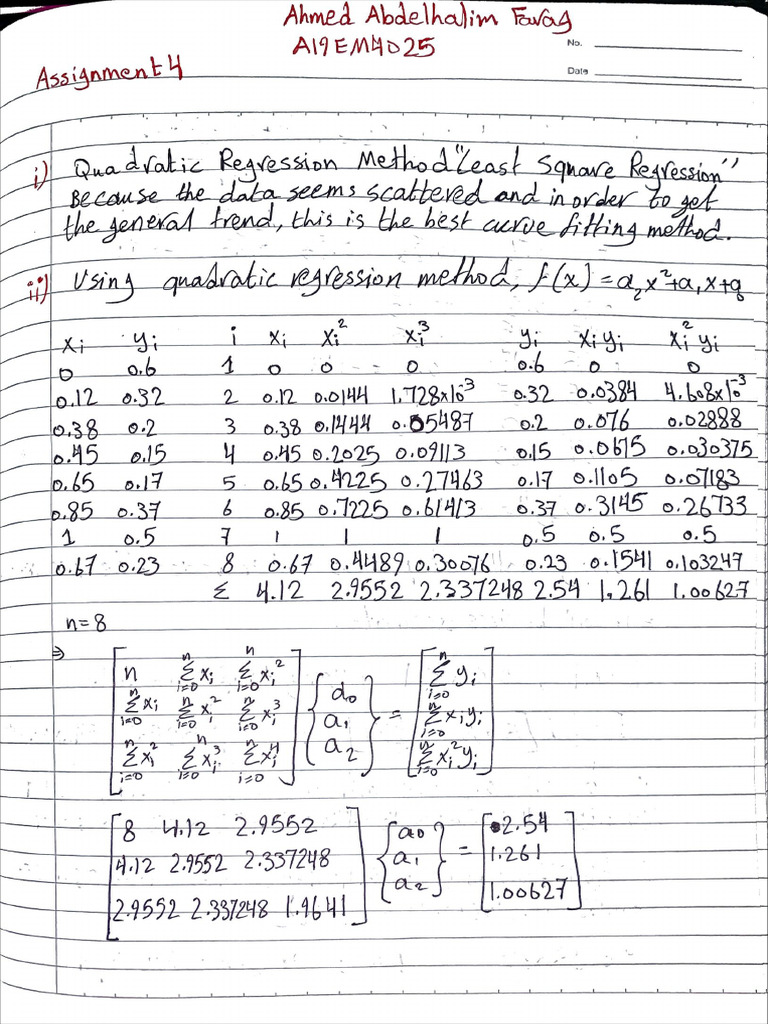 Ahmed Abdelhalim Farag
A19EM4025
No.
Date
Assignment 4
i) Quadratic Regression Method "Least Square Regression"
Because the data seems scattered and in order to get
the general trend, this is the best curve fitting method.
ii) Using quadratic regression method, f(x) = a₂x²+a₁x+a₀
xi yi i xi xi² xi³ yi xiyi xi²yi
0 0.6 1 0 0 0 0.6 0 0
0.12 0.32 2 0.12 0.0144 1.728x10⁻³ 0.32 0.0384 4.608x10⁻³
0.38 0.2 3 0.38 0.1444 0.05487 0.2 0.076 0.02888
0.45 0.15 4 0.45 0.2025 0.09113 0.15 0.0675 0.030375
0.65 0.17 5 0.65 0.4225 0.27463 0.17 0.1105 0.07183
0.85 0.37 6 0.85 0.7225 0.61413 0.37 0.3145 0.26733
1 0.5 7 1 1 1 0.5 0.5 0.5
0.67 0.23 8 0.67 0.4489 0.30076 0.23 0.1541 0.103247
Σ 4.12 2.9552 2.337248 2.54 1.261 1.00627
n=8
⇒ [n Σⁿᵢ₌₀ xi Σⁿᵢ₌₀ xi²] {a₀} = [Σⁿᵢ₌₀ yi]
[Σⁿᵢ₌₀ xi Σⁿᵢ₌₀ xi² Σⁿᵢ₌₀ xi³] {a₁} [Σⁿᵢ₌₀ xiyi]
[Σⁿᵢ₌₀ xi² Σⁿᵢ₌₀ xi³ Σⁿᵢ₌₀ xi⁴] {a₂} [Σⁿᵢ₌₀ xi²yi]
[8 4.12 2.9552] {a₀} = [2.54]
[4.12 2.9552 2.337248] {a₁} [1.261]
[2.9552 2.337248 1.9641] {a₂} [1.00627]